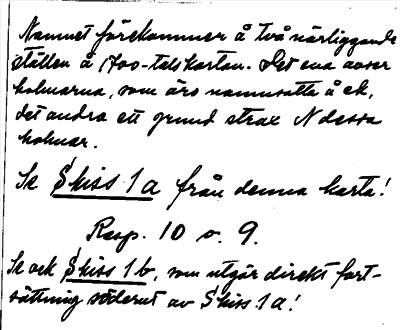 Namnet förekommer å två närliggande
ställen å 1700-talskartan. Det ena avser
holmarna, som äro namnsatta å ek,
det andra ett grund strax N dessa
holmar.
Se Skiss 1 a från denna karta!
Resp. 10 o. 9.
Se ock Skiss 1 b, som utgör direkt fort-
sättning söderut av Skiss 1a!